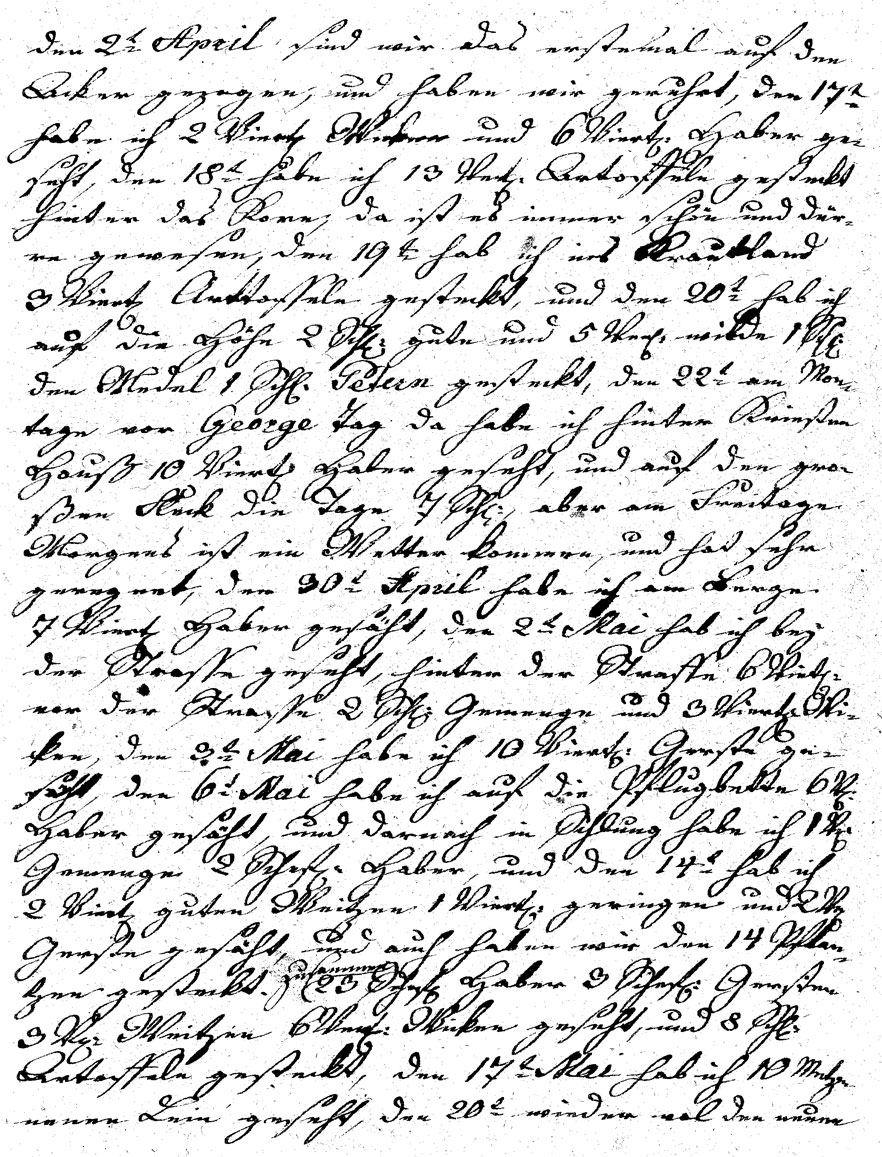 den 2t April sind wir das erstemal auf den
Acker gezogen, und haben wir geruhrt, den 17t
habe ich 2 Viert. Wicken und 6 Viert. Haber ge-
seht, den 18t habe ich 13 Vert. Artoffeln gesteckt
hinter das Korn, da ist es immer schön und dür-
re gewesen, den 19t hab ich ins Krautland
3 Viert. Arttoffeln gesteckt, und den 20t hab ich
auf die Höhe 2 Schl. gute und 5 Vert. wilde 1 Schl.
den Medel 1 Schl. Petern gesteckt, den 22t am Mon-
tage vor George Tag da habe ich hinter
Hauß 10 Viert. Haber geseht, und auf den gro-
ßen Fleck die Tage 7 Schl., aber am Freitage
Morgens ist ein Wetter kommen, und hat sehr
geregnet, den 30t April habe ich am Berge
7 Viert. Haber gesäht, den 2t Mai hab ich bey
der Strasse geseht, hinter der Strasse 6 Viert.
vor der Strasse 2 Schl. Gemenge und 3 Viert. Wi-
cken, den 3t Mai habe ich 10 Viert. Gerste ge-
säht, den 6t Mai habe ich auf die Pflugbette 6 V.
Haber gesäht, und darnach in Schlung habe ich 1 Vr.
Gemenge 2 Schef. Haber, und den 14t hab ich
2 Viert. guten Weitzen 1 Viert. geringen und 2 Vr.
Gerste gesäht, und auch haben wir den 14 Pflan-
tzen gesteckt. zusammen (23 Schef. Haber 3 Schef. Gersten
3 Vr. Weitzen 6 Vert. Wicken geseht, und 8 Schl.
Artoffeln gesteckt, den 17t Mai hab ich 10 Metzen
neuen Lein geseht, den 20t wieder vol den neuen